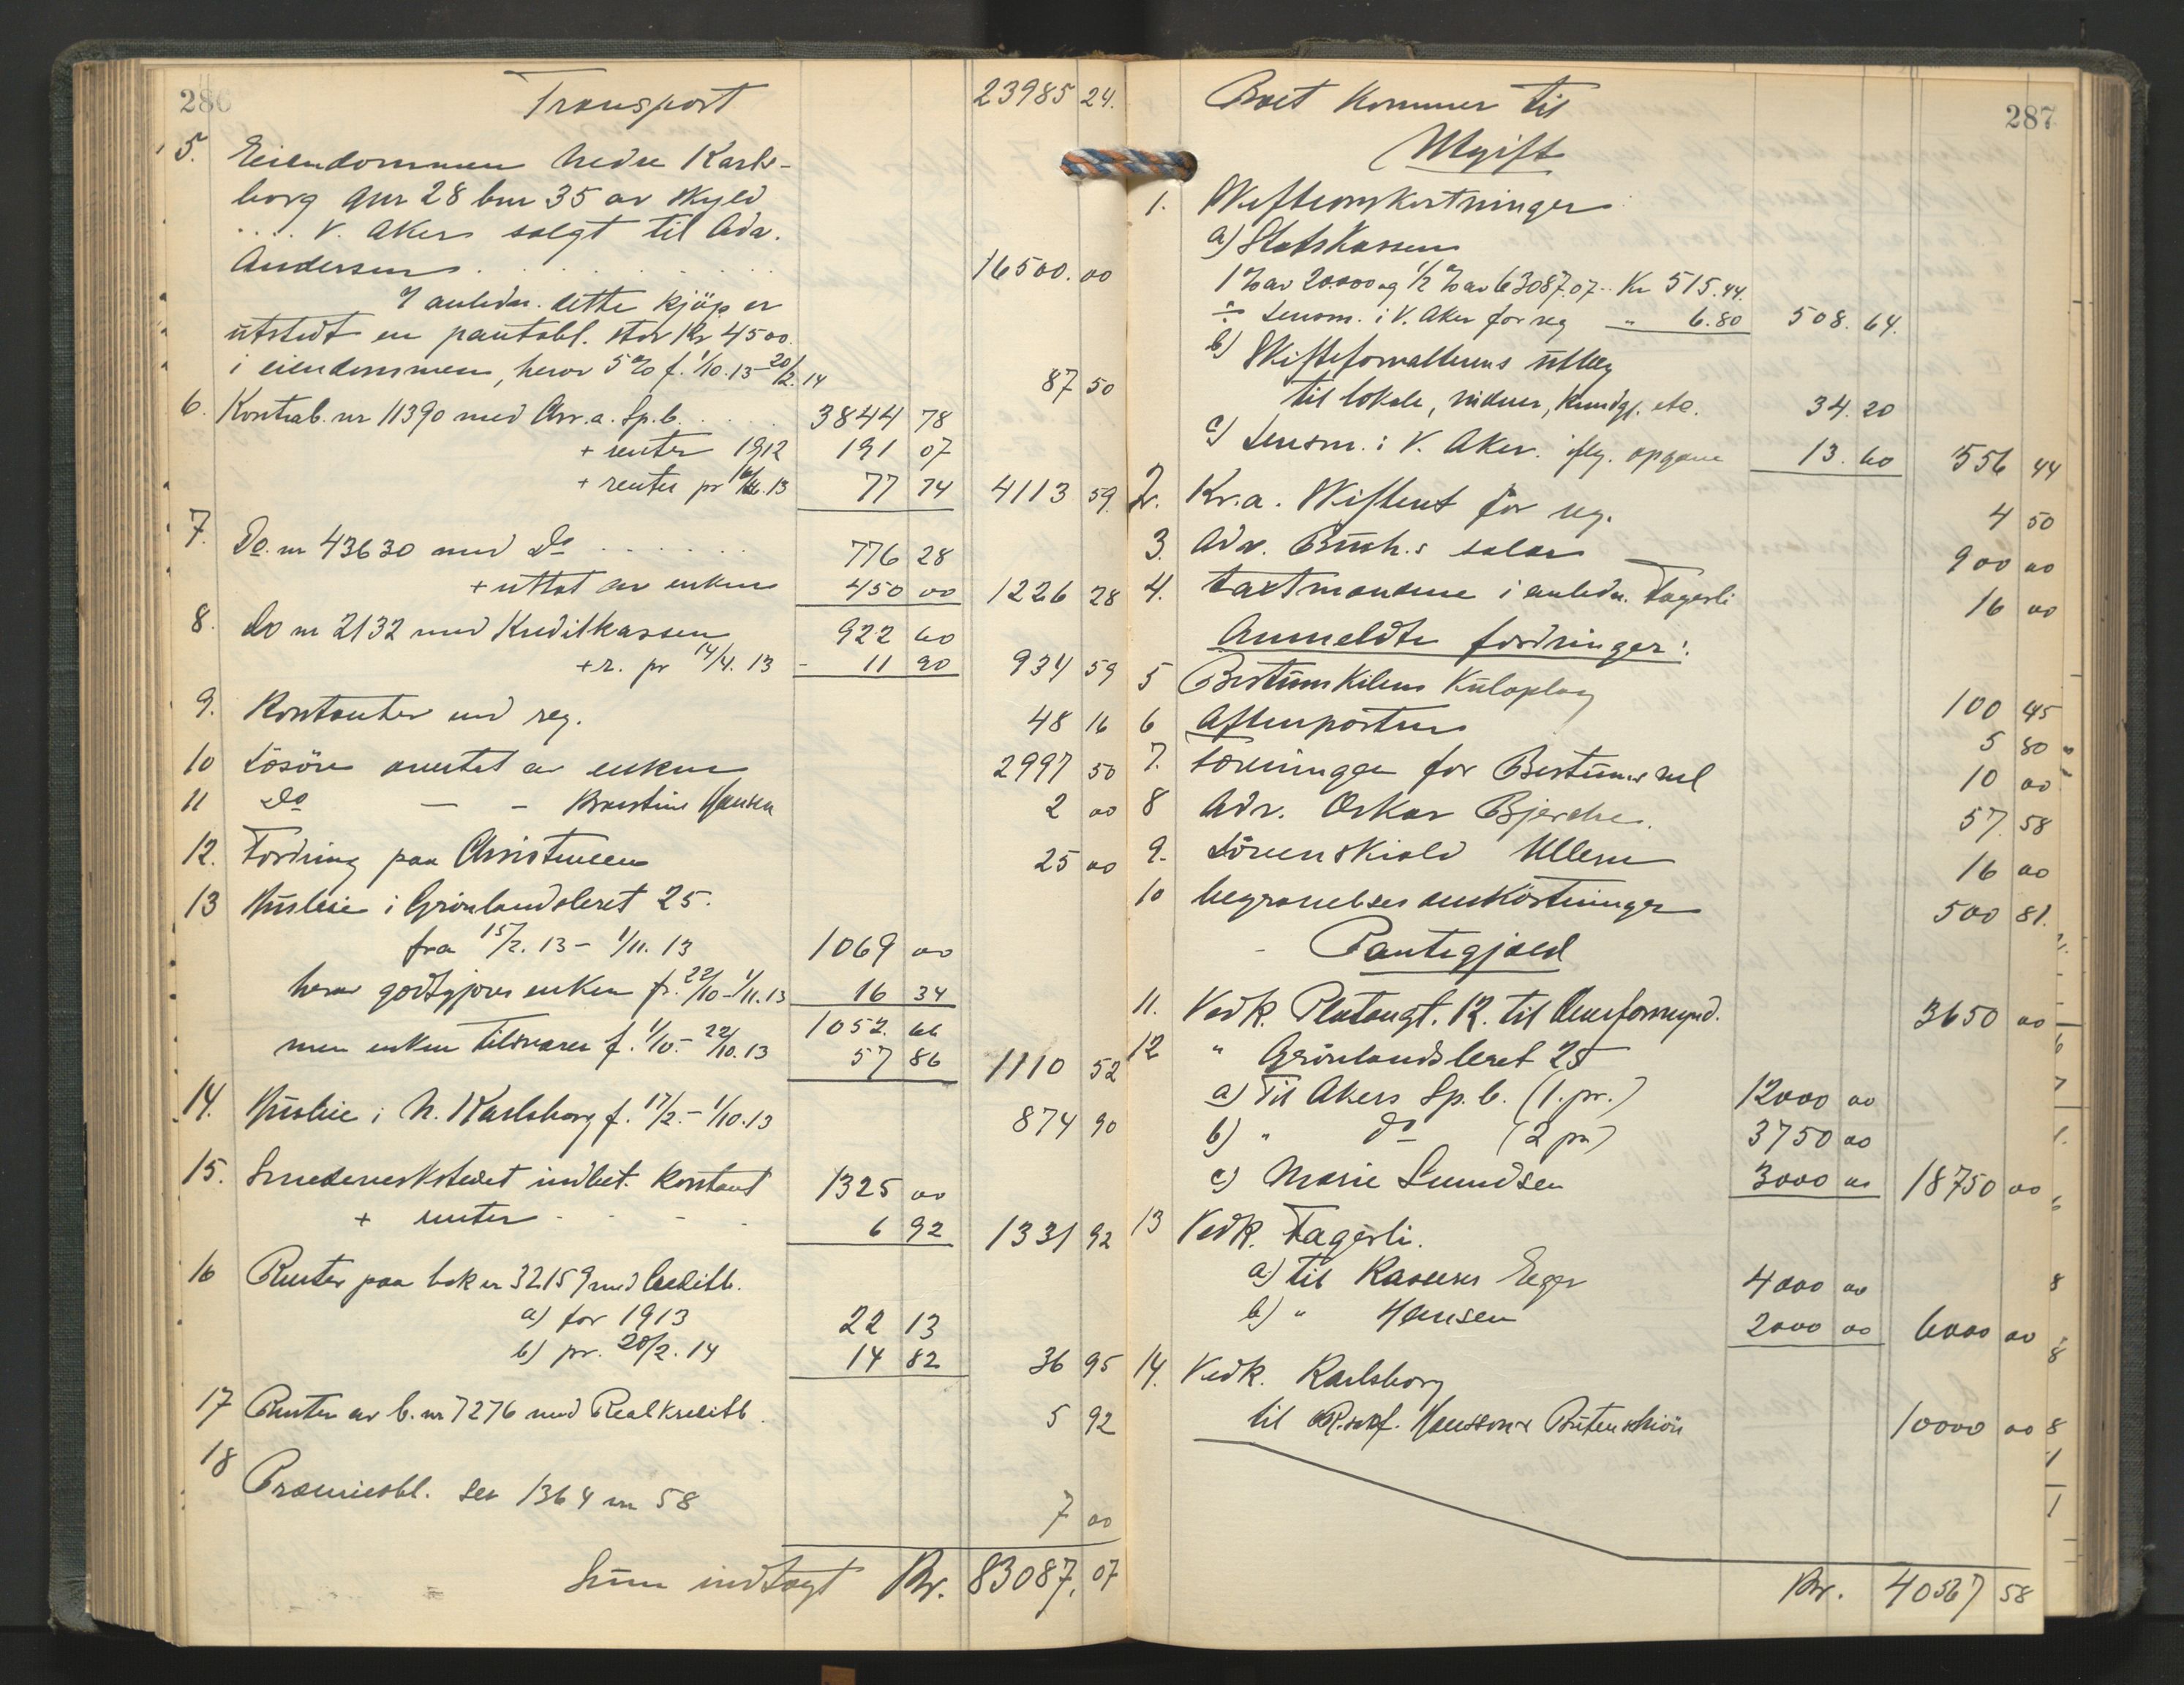 286
Transport 23985 24.
5. Eiendommen Nedre Karls-
borg gnr 28 bnr 35 av skyld
.... V. Aker solgt til Adv.
Andersen . . . . . . . 16500.00
I anledn. dette kjøp er
utstedt en pantobl. stor Kr 4500.
i eiendommen, herav 5% f. 1/10.13-20/2.14 87 50
6. Kontrab. nr 11390 med Chr.a. Sp.b. . . . 3844 78
+ renter 1912 191 07
+ renter pr .13 77 74 4113 59
7. Do. nr 43630 med Do . . . . . . 776 28
+ uttat av enken 450 00 1226 28
8. do nr 2132 med Kreditkassen 922 60
+ r. pr 14/4. 13 - 11 90 934 59
9. Kontanter ved reg. 48 16
10 Løsøre overtat av enken 2997 50
11 Do — - Hansen 2 00
12. Fordring paa Christensen 25 00
13 Husleie i Grønlandsleret 25.
fra 15/2. 13 - 1/11. 13 1069 00
herav godtgjøres enken f. 22/10 - 1/11.13 16 34
1052. 66
men enken tilsvarer f. 1/10. - 22/10.13 57 86 1110 52
14. Husleie i N. Karlsborg f. 17/2. - 1/10.13 874 90
15. Smedeverkstedet indbet. kontant 1325 00
+ renter - - - . 6 92 1331 92
16 Renter paa bok nr 32159 med Creditb.
a) for 1913 22 13
b) pr. 20/2. 14 14 82 36 95
17 Renter av b. nr 7276 med Realkreditb. 5 92
18 Præmieobl. Ser 1364 nr 58 7 00
Sum indtægt Kr. 83087. 07
287
Boet kommer til
Utgift
1. Skifteomkostninger
a) Statskassen
1% av 20.000 og 1/2 % av 63087.07.. Kr 515.44.
÷ Lensm. i V. Aker for reg — " 6.80 508. 64.
b) Skifteforvalterens utlæg
til lokale, vidner, kundgj. etc. 34. 20
c) Lensm. i V. Aker. iflg. opgave 13. 60 556 44
2. Kr.a. Skifteret for reg. 4 50
3. Adv. Buch.s salær — 900 00
4. Takstmændene i anledn. Fagerli 16 00
Anmeldte fordringer:
5 Bestumkilens Kuloplag 100 45
6 Aftenposten 5 80
7. Foreningen for Bestums vel 10 00
8 Adv. Oskar Bjerche. 57. 58
9. Løvenskiold Ullern 16 00
10 begravelsesomkostninger 500 81.
Pantegjæld
11. Vedk. Platougt. 12. til Overformynd. 3650 00
12 " Grønlandsleret 25
a) Til Akers Sp.b. (1. pr.) 12000 00
b) " do (2 pr) 3750 00
c) Marie Lundsen 3000 00 18750 00
13 Vedk. Fagerli.
a) til Kasserer Eeger 4000 00
b) " Hansen 2000 00 6000 00
14. Vedk. Karlsborg
til 10000 00
Kr. 40567 58